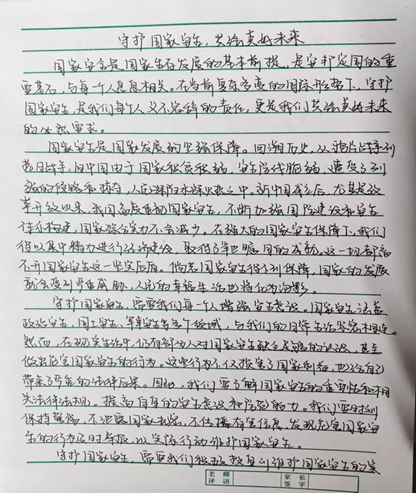 守护国家安全，共绘美好未来
国家安全是国家生存发展的基本前提，是安邦定国的重
要基石，与每个人息息相关。在当前复杂多变的国际形势下，守护
国家安全，是我们每个人义不容辞的责任，更是我们共绘美好未来
的必然要求。
国家安全是国家发展的坚强保障。回溯历史，从鸦片战争到
抗日战争，旧中国由于国家积贫积弱，安全防线脆弱，遭受了列
强的侵略和掠夺，人民深陷水深火热之中。新中国成立后，尤其是改
革开放以来，我国高度重视国家安全，不断加强国防建设和安全
体系构建，国家综合实力不断提升。在强大的国家安全保障下，我们
得以集中精力进行经济建设，取得了举世瞩目的成就。这一切都离
不开国家安全这一坚实后盾。倘若国家安全得不到保障，国家的发展
就会受到严重威胁，人民的幸福生活也将化为泡影。
守护国家安全，需要我们每个人增强安全意识。国家安全涵盖
政治安全，国土安全，军事安全等多个领域，与我们的日常生活紧密相连。
然而，在现实生活中，仍有部分人对国家安全缺乏足够的认识，甚至
做出危害国家安全的行为。这些行为不仅损害了国家利益，也让自己
带来了严重的法律后果。因此，我们要了解国家安全的重要性和相
关法律法规，提高自身的安全意识和防范能力。我们要时刻
保持警惕，不泄露国家机密，不传播有害信息，发现危害国家安
全的行为及时举报，以实际行动维护国家安全。
守护国家安全，需要我们积极投身到维护国家安全的实
老师
评语
家长
签字